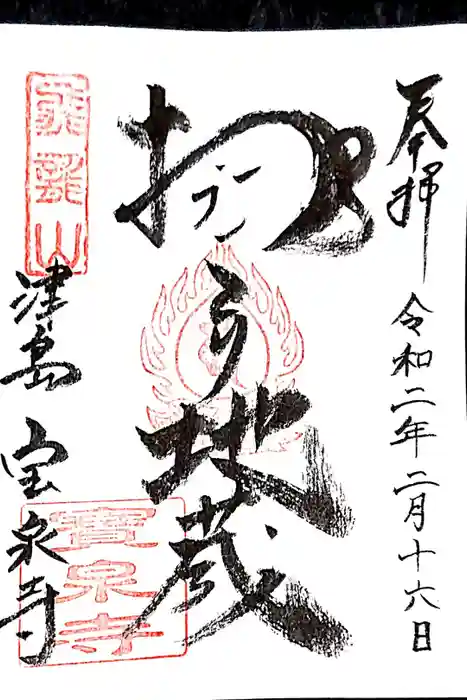 奉拝 令和二年二月十六日
地蔵
山
津島 宝泉寺
寳泉寺